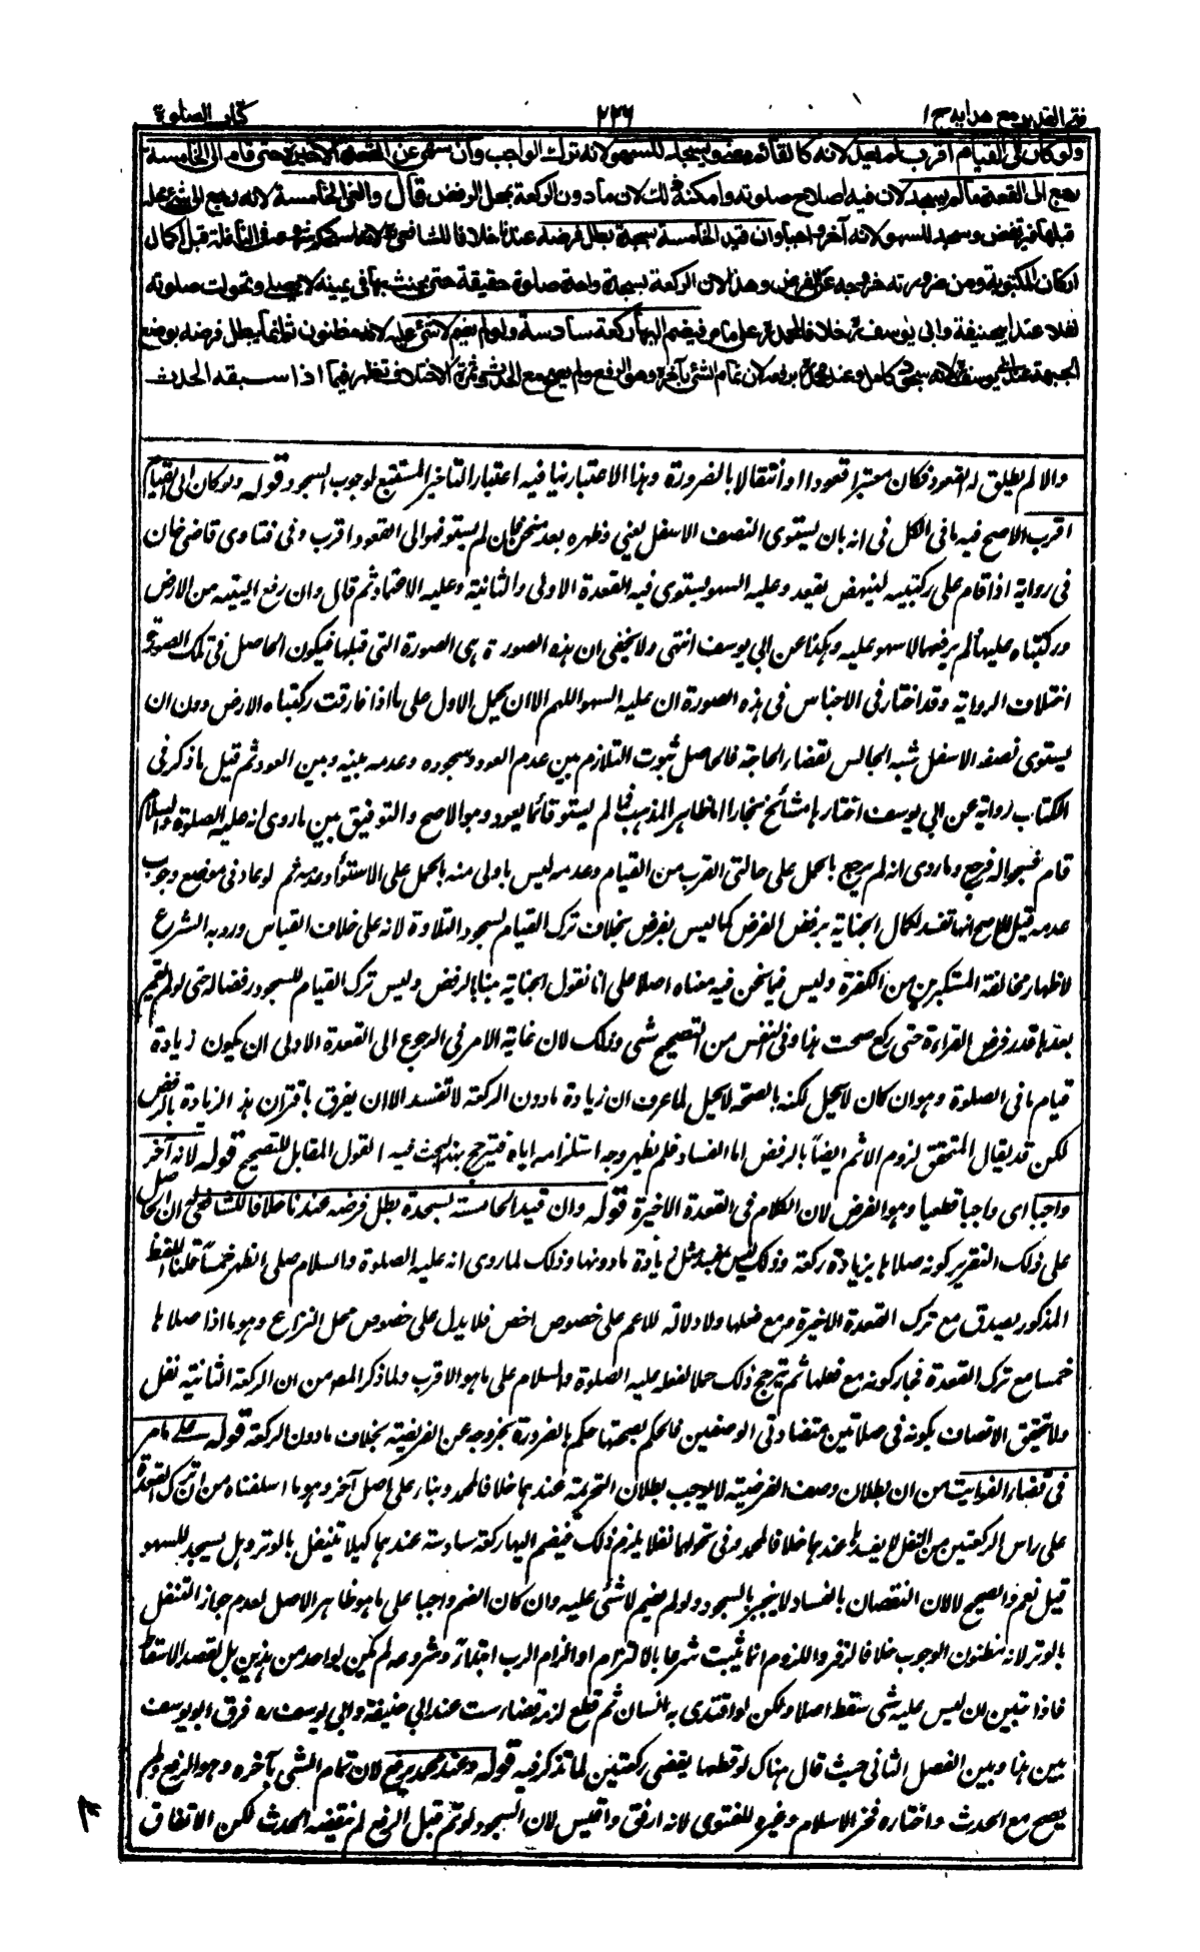 فتح القدير مع هدايه ج ١
٢٢٦
كتاب الصلوة
ولو كان الى القيام اقرب لم يعد لانه كالقائم معنى ويسجد للسهو لانه ترك الواجب وان سهى عن القعدة الاخيرة حتى قام الى الخامسة
رجع الى القعدة ما لم يسجد لان فيه اصلاح صلوته وامكنه ذلك لان ما دون الركعة بمحل الرفض قال والغى الخامسة لانه رجع الى شئ محله
قبلها فيرتفض وسجد للسهو لانه آخر واجبا وان قيد الخامسة بسجدة بطل فرضه عندنا خلافا للشافعي لانه استحكم شروعه فى النافلة قبل اكمال
اركان المكتوبة ومن ضرورته خروجه عن الفرض وهذا لان الركعة بسجدة واحدة صلوة حقيقة حتى يحنث بها فى يمينه لا يصلى وتحولت صلوته
نفلا عند ابى حنيفة وابى يوسف خلافا لمحمد على ما مر فيضم اليها ركعة سادسة ولو لم يضم لا شئ عليه لانه مظنون ثم انما يبطل فرضه بوضع
الجبهة عند ابى يوسف لانه سجود كامل وعند محمد برفعه لان تمام الشئ بآخره وهو الرفع ولم يصح مع الحدث وثمرة الاختلاف تظهر فيما اذا سبقه الحدث
والا لم يطلق له القعود فكان معتبرا قعودا او انتقالا بالضرورة وهذا الاعتبار ينافيه اعتبار التاخير المستتبع لوجوب السجود قوله ولو كان الى القيام
اقرب الاصح فيه ما فى الكل فى انه بان يستوى النصف الاسفل يعنى وظهره بعد منحن فان لم يستو فهو الى القعود اقرب وفى فتاوى قاضى خان
فى رواية اذا قام على ركبتيه لينهض يقعد وعليه السهو يستوى فيه القعدة الاولى والثانية وعليه الاعتماد ثم قال وان رفع اليتيه من الارض
وركبتاه عليها لم يرفعهما لا سهو عليه وهكذا عن ابى يوسف انتهى ولا يخفى ان هذه الصورة هى الصورة التى قبلها فيكون الحاصل فى تلك الصورة
اختلاف الرواية وقد اختار فى الاجناس فى هذه الصورة ان عليه السهو اللهم الا ان يحمل الاول على ما اذا فارقت ركبتاه الارض دون ان
يستوى نصفه الاسفل شبه الجالس لقضاء الحاجة فالحاصل ثبوت التلازم بين عدم العود وسجوده وعدمه بينه وبين العود ثم قيل ما ذكر فى
الكتاب رواية عن ابى يوسف اختارها مشائخ بخارا اما ظاهر المذهب فما لم يستو قائما يعود وهو الاصح والتوفيق بين ما روى انه عليه الصلوة والسلام
قام فسبحوا له فرجع وما روى انه لم يرجع بالحمل على حالتى القرب من القيام وعدمه ليس باولى منه بالحمل على الاستواء وعدمه ثم لو عاد فى موضع وجوب
عدمه قيل الاصح انها تفسد لكمال الجناية برفض الفرض لما ليس بفرض بخلاف ترك القيام لسجود التلاوة لانه على خلاف القياس ورد به الشرع
لاظهار مخالفة المستكبرين من الكفرة وليس فيما نحن فيه معناه اصلا على انا نقول الجناية هنا بالرفض وليس ترك القيام للسجود رفضا له حتى لو لم يقم
بعدها قدر فرض القراءة حتى ركع صحت هذا وفى النفس من التصحيح شئ وذلك لان غاية الامر فى الرجوع الى القعدة الاولى ان يكون زيادة
قيام ما فى الصلوة وهو ان كان لا يحل لكنه بالصحة لا يخل لما عرف ان زيادة ما دون الركعة لا تفسد الا ان يفرق باقتران هذه الزيادة بالرفض
لكن قد يقال المتحقق لزوم الاثم ايضا بالرفض اما الفساد فلم يظهر وجه استلزامه اياه فيترجح بهذا البحث فيه القول المقابل للتصحيح قوله لانه آخر
واجبا اى واجبا قطعيا وهو الفرض لان الكلام فى القعدة الاخيرة قوله وان قيد الخامسة بسجدة بطل فرضه عندنا خلافا للشافعي ان الحاصل
على ذلك التقرير كونه صلاها بزيادة ركعة وذلك ليس بمفسد مثل زيادة ما دونها وذلك لما روى انه عليه الصلوة والسلام صلى الظهر خمسا قلنا اللفظ
المذكور يصدق مع ترك القعدة الاخيرة ومع فعلها ولا دلالة للاعم على خصوص اخص فلا يدل على خصوص محل النزاع وهو ما اذا صلاها
خمسا مع ترك القعدة فجاز كونه مع فعلها ثم يترجح ذلك حملا لفعله عليه الصلوة والسلام على ما هو الاقرب ولما ذكر المصنف من ان الركعة الثانية نفل
ولا يتحقق الاتصاف بكونه فى صلاتين متضادتى الوصفين فالحكم بصحتها حكم بالضرورة بخروجه عن الفريضة بخلاف ما دون الركعة قوله على ما مر
فى قضاء الفوايت من ان بطلان وصف الفرضية لا يوجب بطلان التحريمة عندهما خلافا لمحمد وبناء على اصل آخر وهو ما اسلفناه من ان ترك القعدة
على راس الركعتين من النفل لا يفسد عندهما خلافا لمحمد وفى تحولها نفلا يلزم ذلك فيضم اليها ركعة سادسة عندهما كيلا يتنفل بالوتر وهل يسجد للسهو
قيل نعم والصحيح لا لان النقصان بالفساد لا ينجبر بالسجود ولو لم يضم لا شئ عليه وان كان الضم واجبا على ما هو ظاهر الاصل لعدم جواز التنفل
بالوتر لانه مظنون الوجوب خلافا لزفر واللزوم انما يثبت شرعا بالالتزام او الزام الرب ابتداء وشروعه لم يكن لواحد من هذين بل لقصد الاسقاط
فاذا تبين ان ليس عليه شئ سقط اصلا ولكن لو اقتدى به انسان ثم قطع لزمه قضاء ست عند ابى حنيفة وابى يوسف ره فرق ابو يوسف
بين هذا وبين الفصل الثانى حيث قال هناك لو قطعها يقضى ركعتين لما تذكر فيه قوله وعند محمد برفعه لان تمام الشئ بآخره وهو الرفع ولم
يصح مع الحدث واختاره فخر الاسلام وغيره للفتوى لانه ارفق واقيس لان السجود لو تم قبل الرفع لم ينقضه الحدث لكن الاتفاق